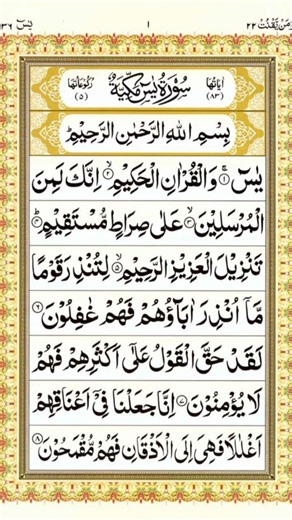 وَمَنْ يَّقْنُتْ ٢٢
١
يٰسٓ ٣٦
اٰيَاتُهَا (٨٣)
سُوْرَةُ يٰسٓ مَكِّيَّةٌ
رُكُوْعَاتُهَا (٥)
بِسْمِ اللّٰهِ الرَّحْمٰنِ الرَّحِيْمِ
يٰسٓ ۚ‏﴿۱﴾ وَالْقُرْاٰنِ الْحَكِيْمِ ۙ‏﴿۲﴾ اِنَّكَ لَمِنَ
الْمُرْسَلِيْنَ ۙ‏﴿۳﴾ عَلٰى صِرَاطٍ مُّسْتَقِيْمٍ ؕ‏﴿۴﴾
تَنْزِيْلَ الْعَزِيْزِ الرَّحِيْمِ ۙ‏﴿۵﴾ لِتُنْذِرَ قَوْمًا
مَّاۤ اُنْذِرَ اٰبَآؤُهُمْ فَهُمْ غٰفِلُوْنَ ﴿۶﴾
لَقَدْ حَقَّ الْقَوْلُ عَلٰٓى اَكْثَرِهِمْ فَهُمْ
لَا يُؤْمِنُوْنَ ﴿۷﴾ اِنَّا جَعَلْنَا فِيْٓ اَعْنَاقِهِمْ
اَغْلٰلًا فَهِيَ اِلَى الْاَذْقَانِ فَهُمْ مُّقْمَحُوْنَ ﴿۸﴾